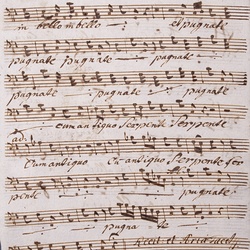 in bello in bello et pugnate
pugnate pugnate pugnate
pugnate pugnate
cum antiquo Serpente Serpente
Cum antiquo Cu antiquo Serpente Ser
pente pugnate
pugnate